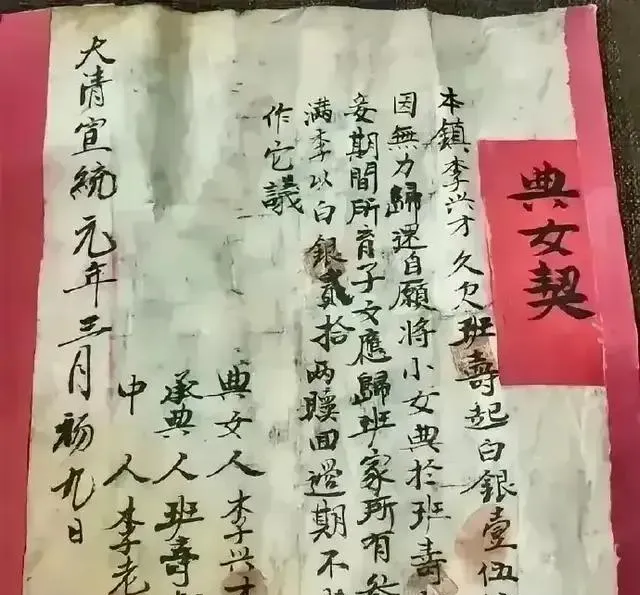 典女契
本鎮李兴才久欠班壽起白銀壹伍
因無力歸还自愿將小女典於班壽
妾期間所育子女應歸班家所有叁
满李以白銀貳拾两贖回過期不
作它議
典女人李兴才
承典人班壽
中人李老
大清宣統元年三月初九日